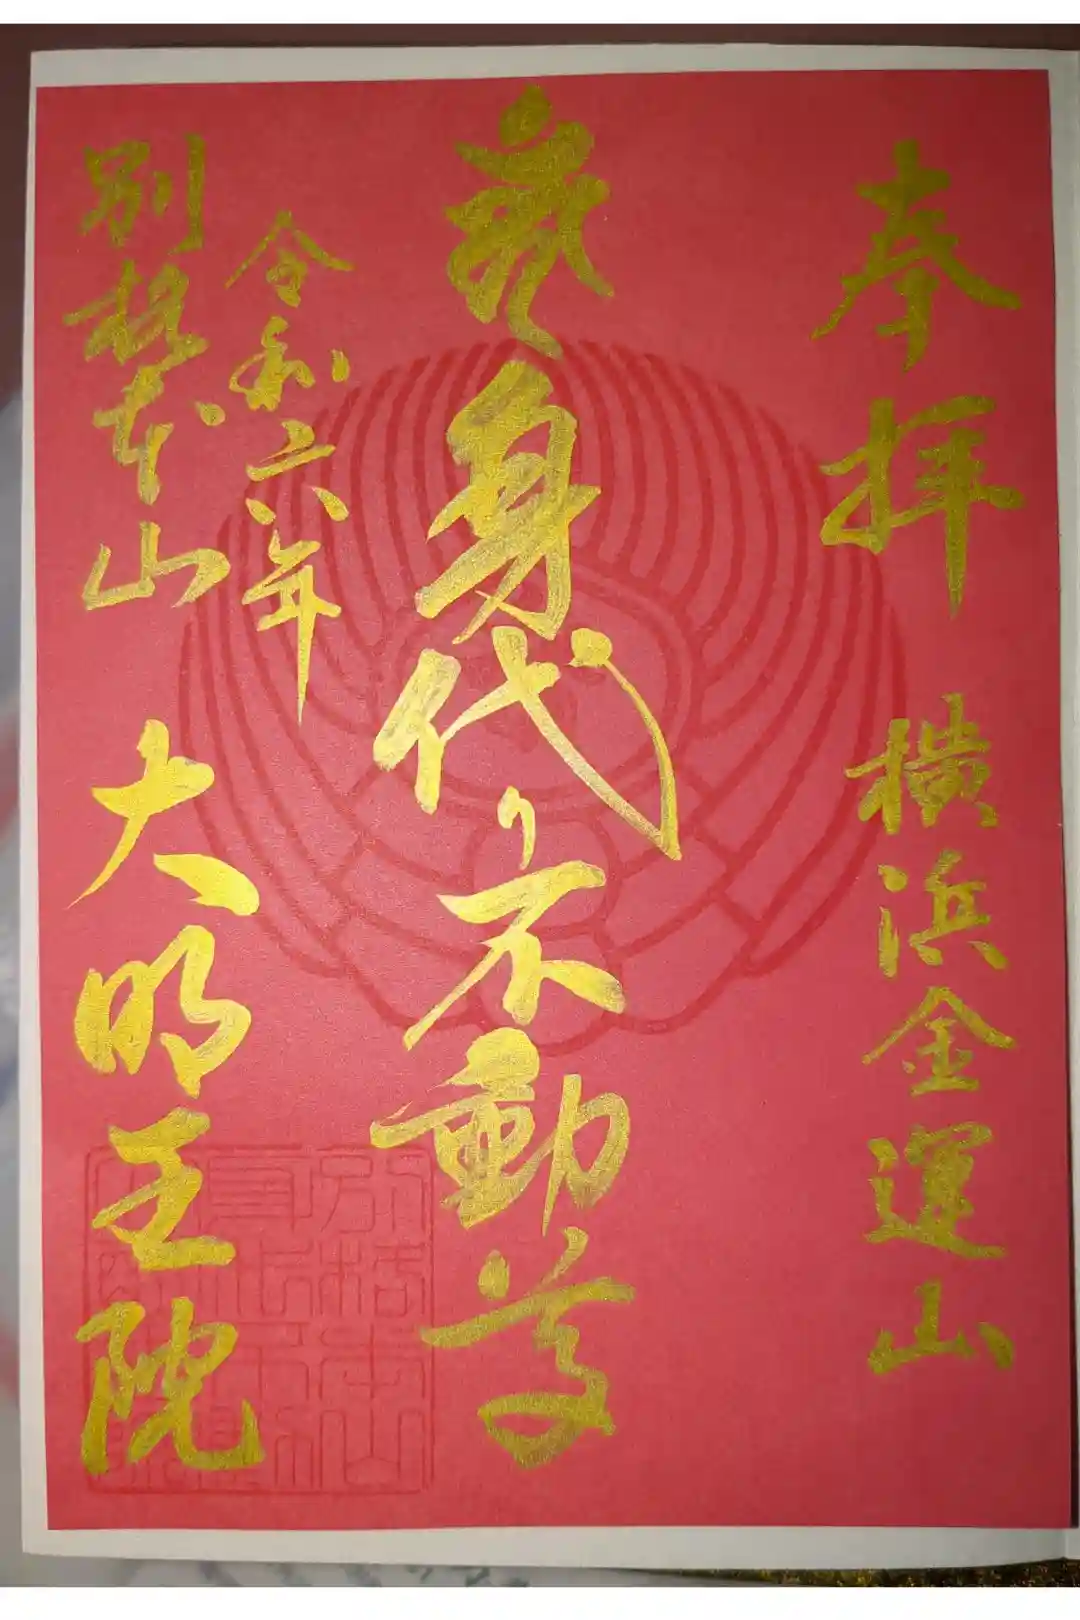 奉拝　横浜金運山
身代り不動尊
令和六年
別格本山　大明王院